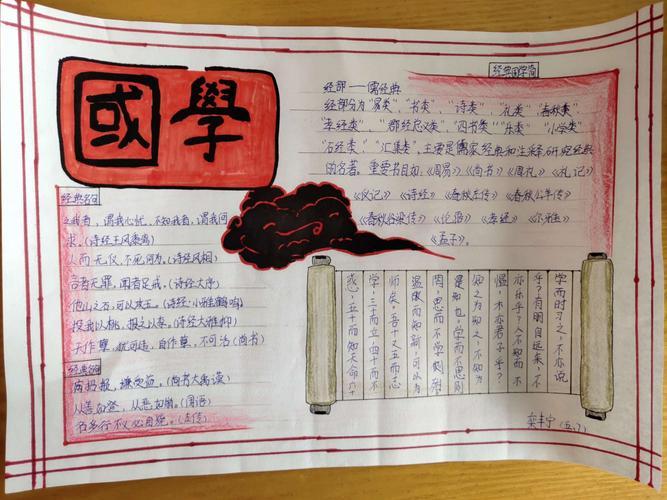 國學
经典国学窗
经部——儒经典
经部分为"易类"、"书类"、"诗类"、"礼类"、"春秋类"
"孝经类"、"群经总义类"、"四书类"、"乐类"、"小学类"
"石经类"、"汇集类"、主要是儒家经典和注释研究经典
的名著。重要书目如:《周易》《尚书》《周礼》《礼记》
《仪记》《诗经》《春秋左传》《春秋公羊传》
《春秋谷梁传》《论语》《孝经》《尔雅》
《孟子》。
经典名句
我者,谓我心忧,不知我者,谓我何
求。(诗经王风黍离)
人而无仪,不死何为。(诗经风相)
言者无罪,闻者足戒。(诗经大序)
他山之石,可以攻玉。(诗经·小雅鹤鸣)
投我以桃,报之以李。(诗经大雅抑)
天作孽,犹可违,自作孽,不可活(尚书)
经典名句
满招损,谦受益。(尚书大禹谟)
从善如登,从恶如崩。(国语)
多行不义必自毙。(左传)
学而时习之,不亦说
乎?有朋自远来,不
亦乐乎?人不知而不
愠,不亦君子乎?
知之为知之,不知为
是知也。学而不思则
罔,思而不学则殆
温故而知新,可以为
师矣。吾十又五而志
学,三十而立,四十而不
惑,五十而知天命,六十
栾丰宁(五、7)